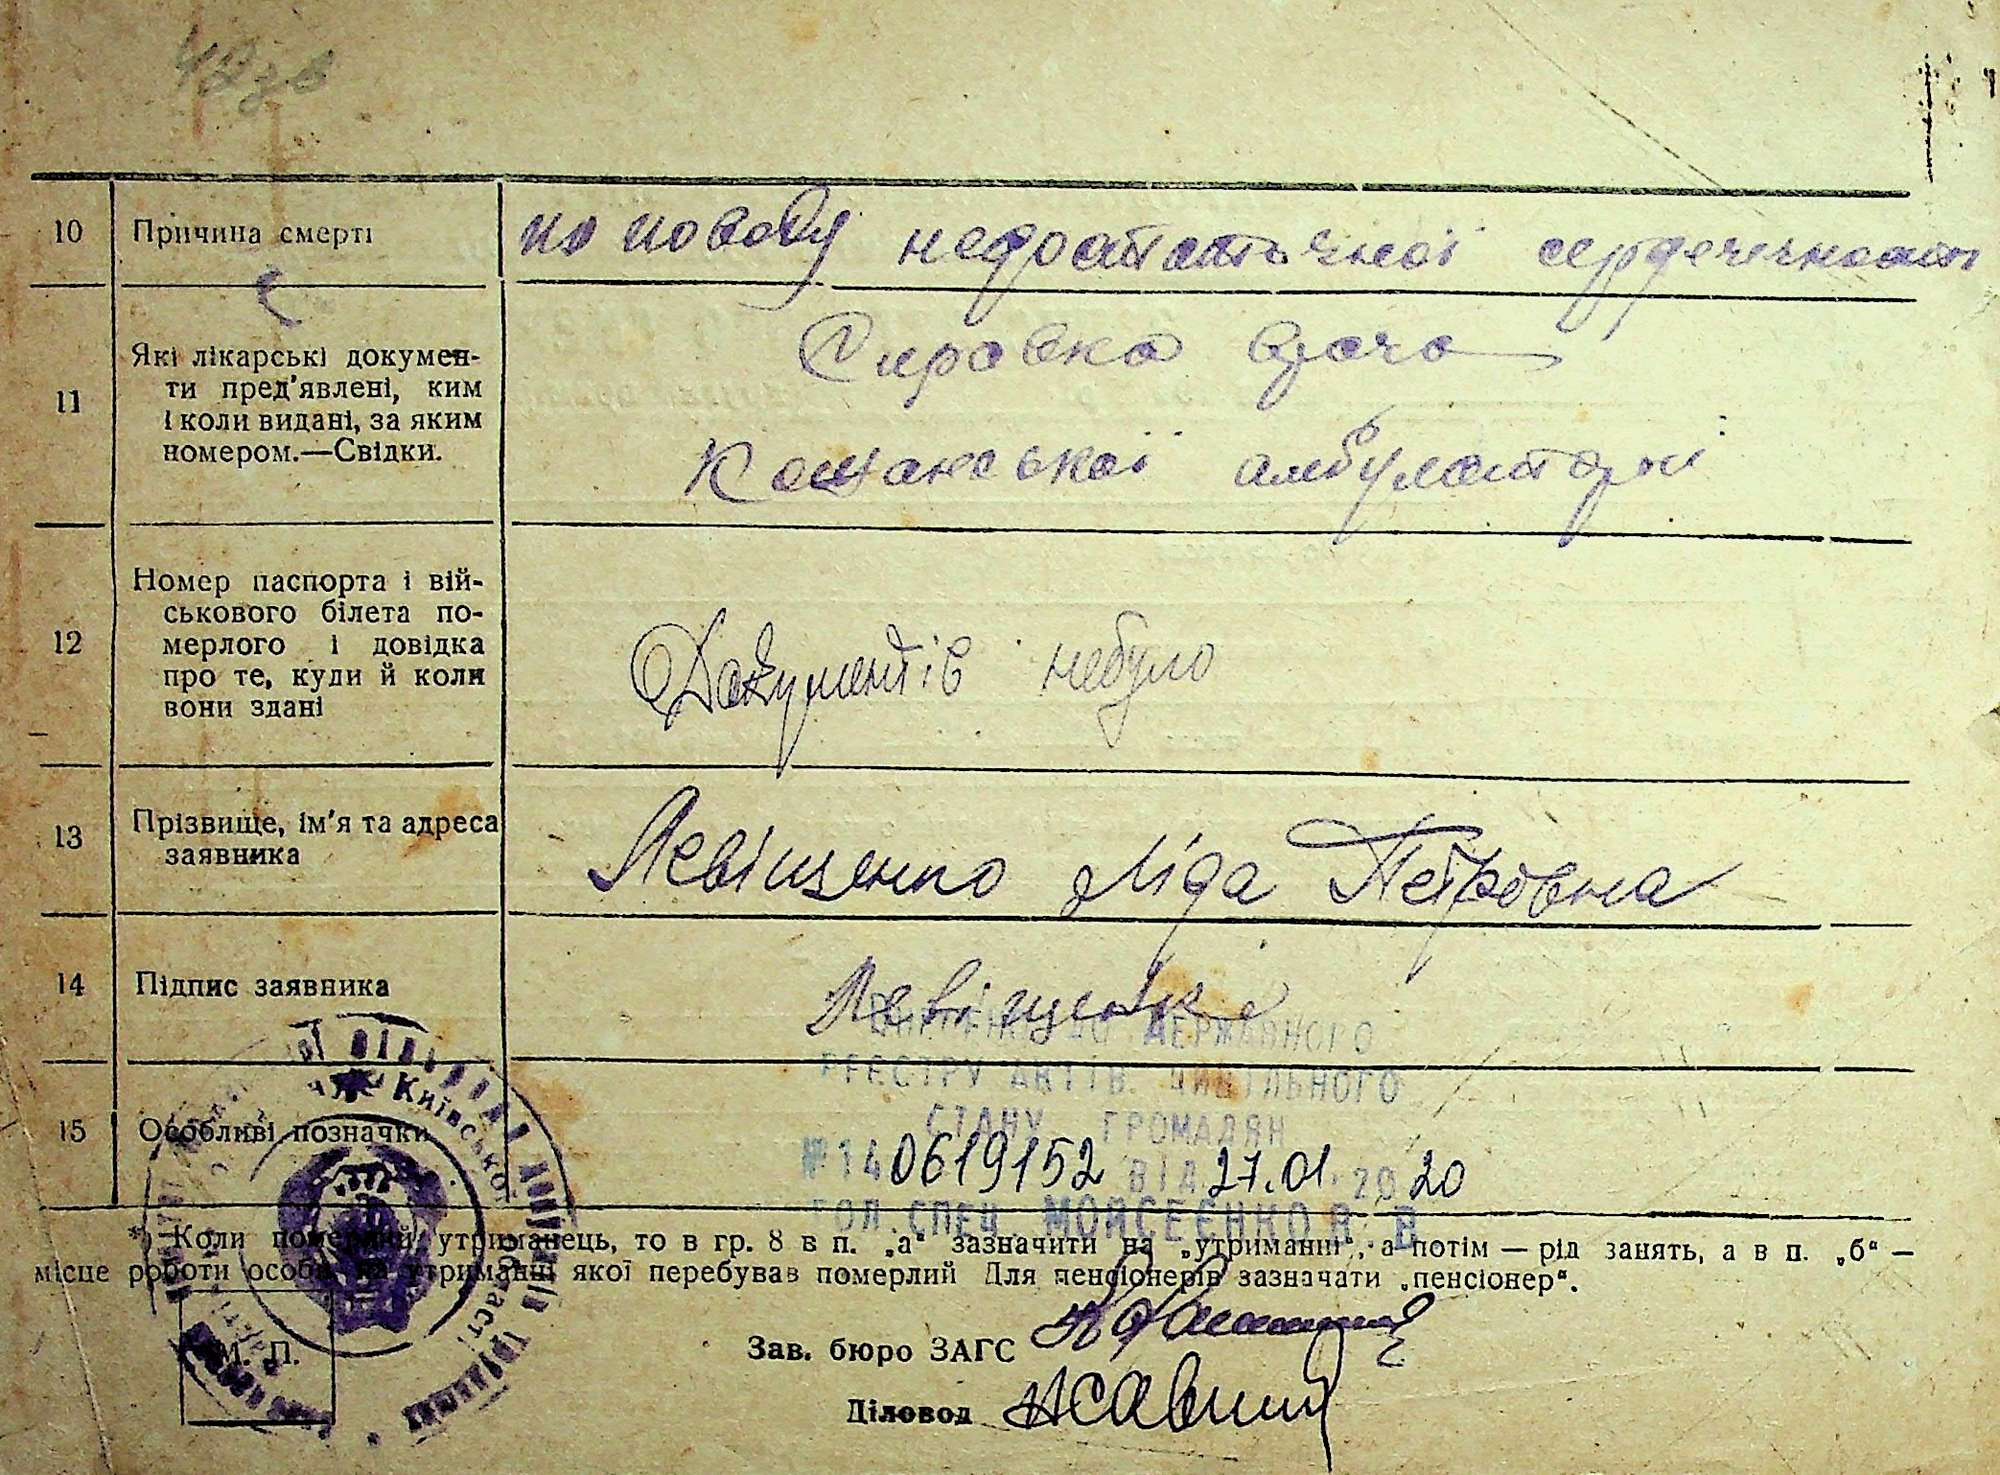 10 Причина смерті по поводу недостаточної сердечности
11 Які лікарські докумен-
ти пред'явлені, ким
і коли видані, за яким
номером.—Свідки.
Справка врача
амбулаторії
12 Номер паспорта і вій-
ськового білета по-
мерлого і довідка
про те, куди й коли
вони здані
Документів небуло
13 Прізвище, ім'я та адреса
заявника
Левіщенко Ліда Петровна
14 Підпис заявника
Левіщенко
15 Особливі позначки
ДО ДЕРЖАВНОГО
РЕЄСТРУ АКТІВ ЦИВІЛЬНОГО
СТАНУ ГРОМАДЯН
№ 140619152 ВІД 27.01.2020
ГОЛ.СПЕЦ. МОЙСЕЄНКО В. В
Київської
*) Коли померлий утриманець, то в гр. 8 в п. „а“ зазначити на „утриманні“, а потім — рід занять, а в п. „б“ —
місце роботи особи на утриманні якої перебував померлий Для пенсіонерів зазначати „пенсіонер“.
М. П.
Зав. бюро ЗАГС
Діловод